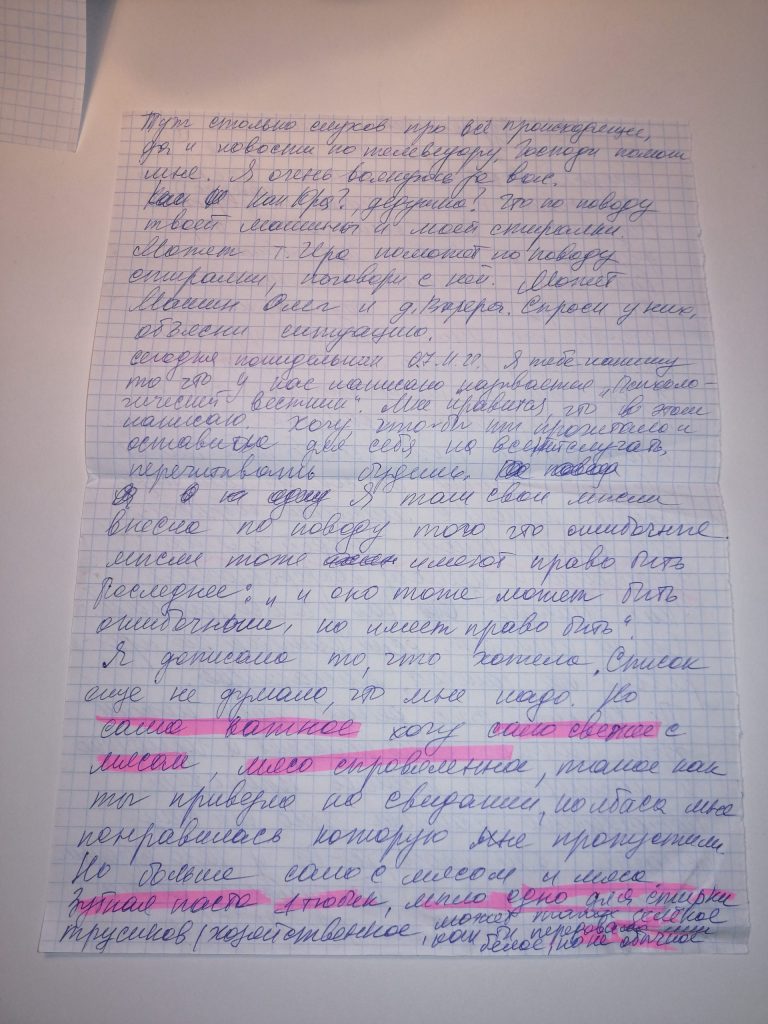 Тут столько слухов про всё происходящее,
да и новости по телевизору, Господи помоги
мне. Я очень волнуюсь за вас.
Как Юра?, дедушка? Что по поводу
твоей машины и моей стиралки.
Может т. Ира поможет по поводу
стиралки, поговори с ней. Может
Машин Олег и д. Валера. Спроси у них,
объясни ситуацию.
Сегодня понидельник 07.11.22. Я тебе напишу
то что у нас написано называется „Психоло-
гический вестник". Мне нравится, что в этом
написано. Хочу, что-бы ты прочитала и
оставила для себя на всякий случай,
перечитывать будешь.
Я там свои мысли
внесла по поводу того что ошибочные
мысли тоже имеют право быть
Последнее: „и оно тоже может быть
ошибочным, но имеет право быть".
Я дописала то, что хотела. Список
еще не думала, что мне надо. Но
самое важное хочу сало свежее с
мясом, мясо справленное, такое как
ты привезла на свидании, колбаса мне
понравилась которую мне пропустили
Но больше сало с мясом и мясо
Зубная паста 1 тюбик, мыло одно для стирки
трусиков/хозяйственное, может такое
как ты передавала
белое, но не обычное